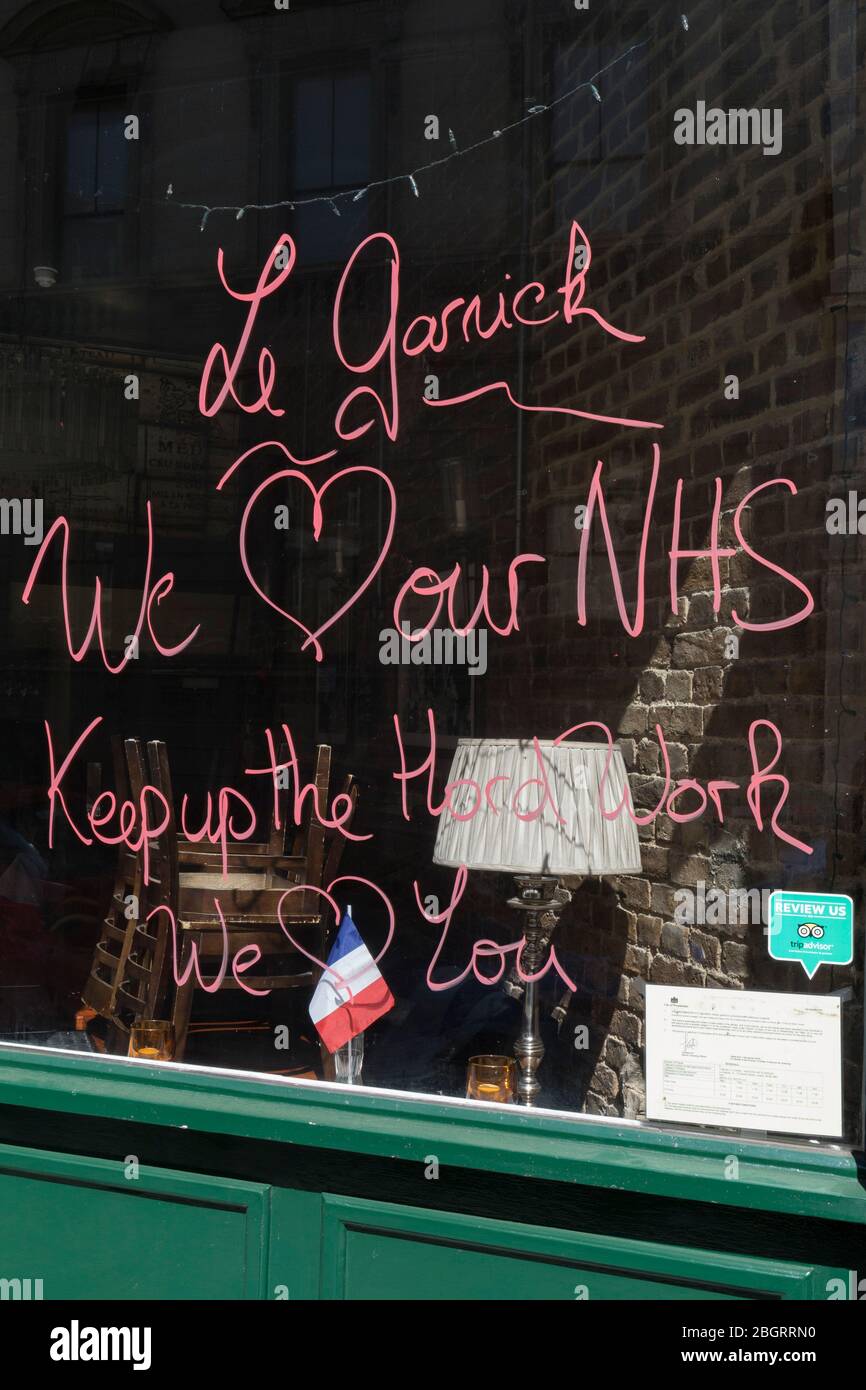 Le Garrick
We ♡ our NHS
Keep up the Hard Work
We ♡ You
REVIEW US
tripadvisor
alamy
Image ID: 2BGRRN0
www.alamy.com